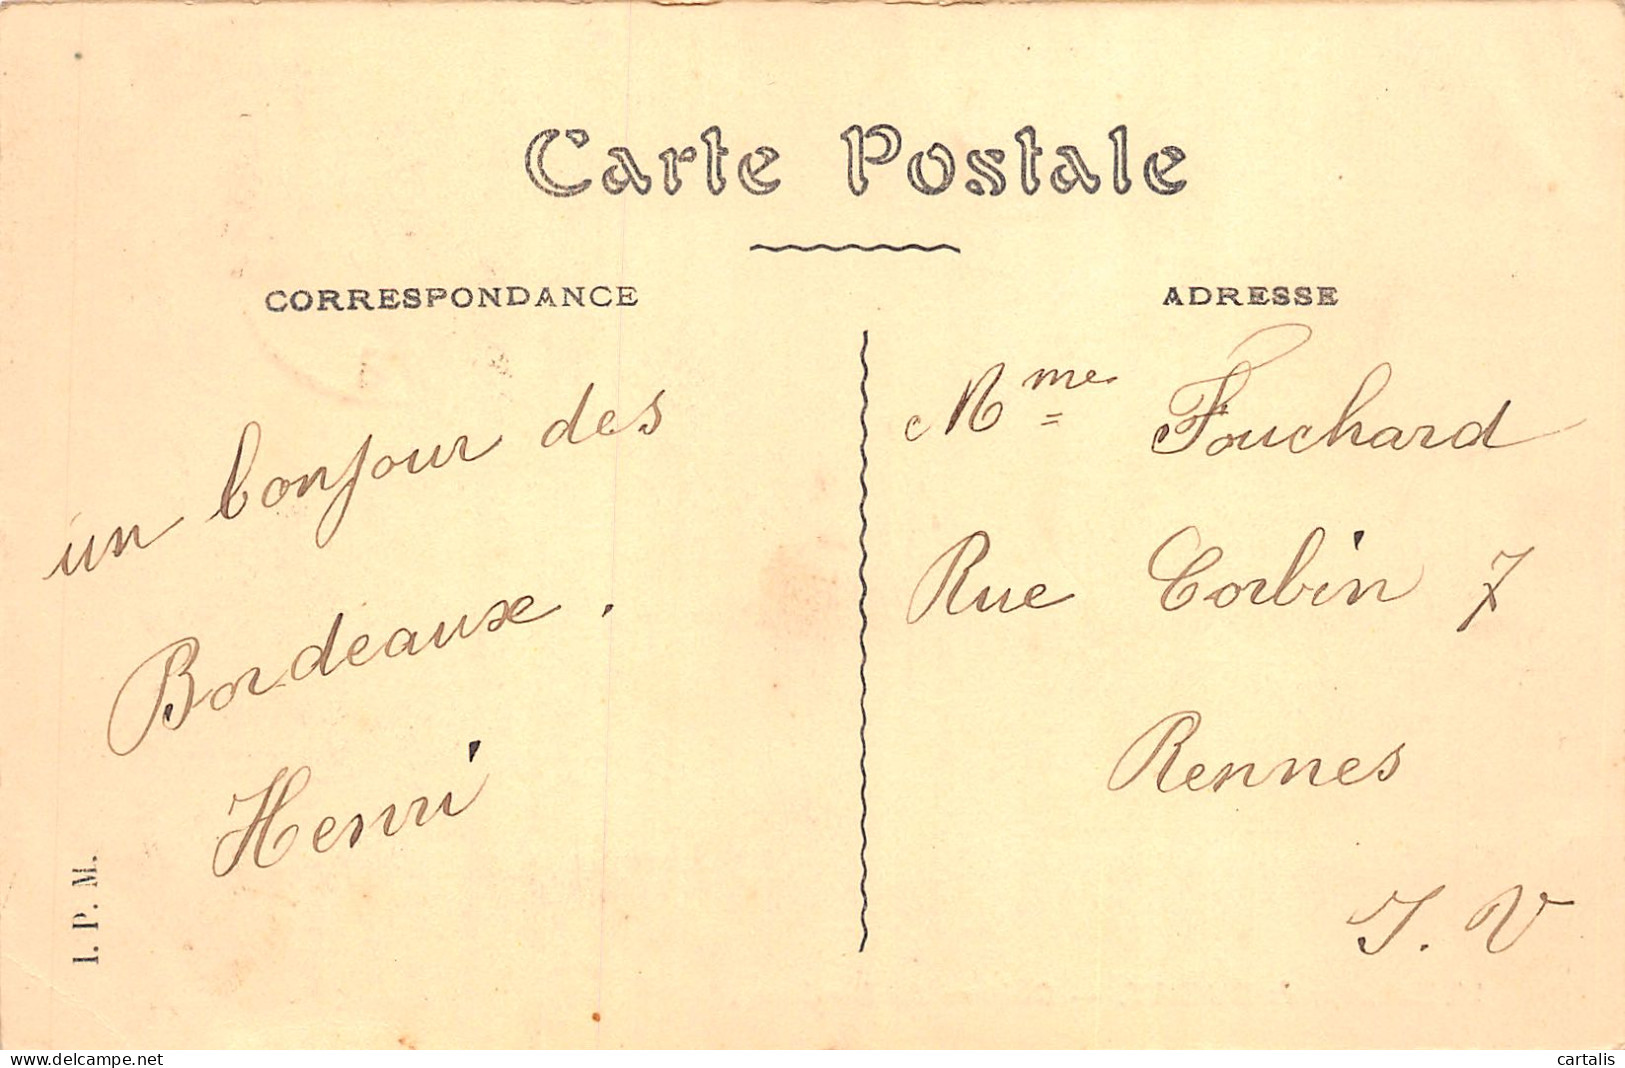 Carte Postale
CORRESPONDANCE
un bonjour des
Bordeaux.
Henri
I. P. M.
ADRESSE
Mme Fouchard
Rue Corbin 7
Rennes
I. V
www.delcampe.net
cartalis